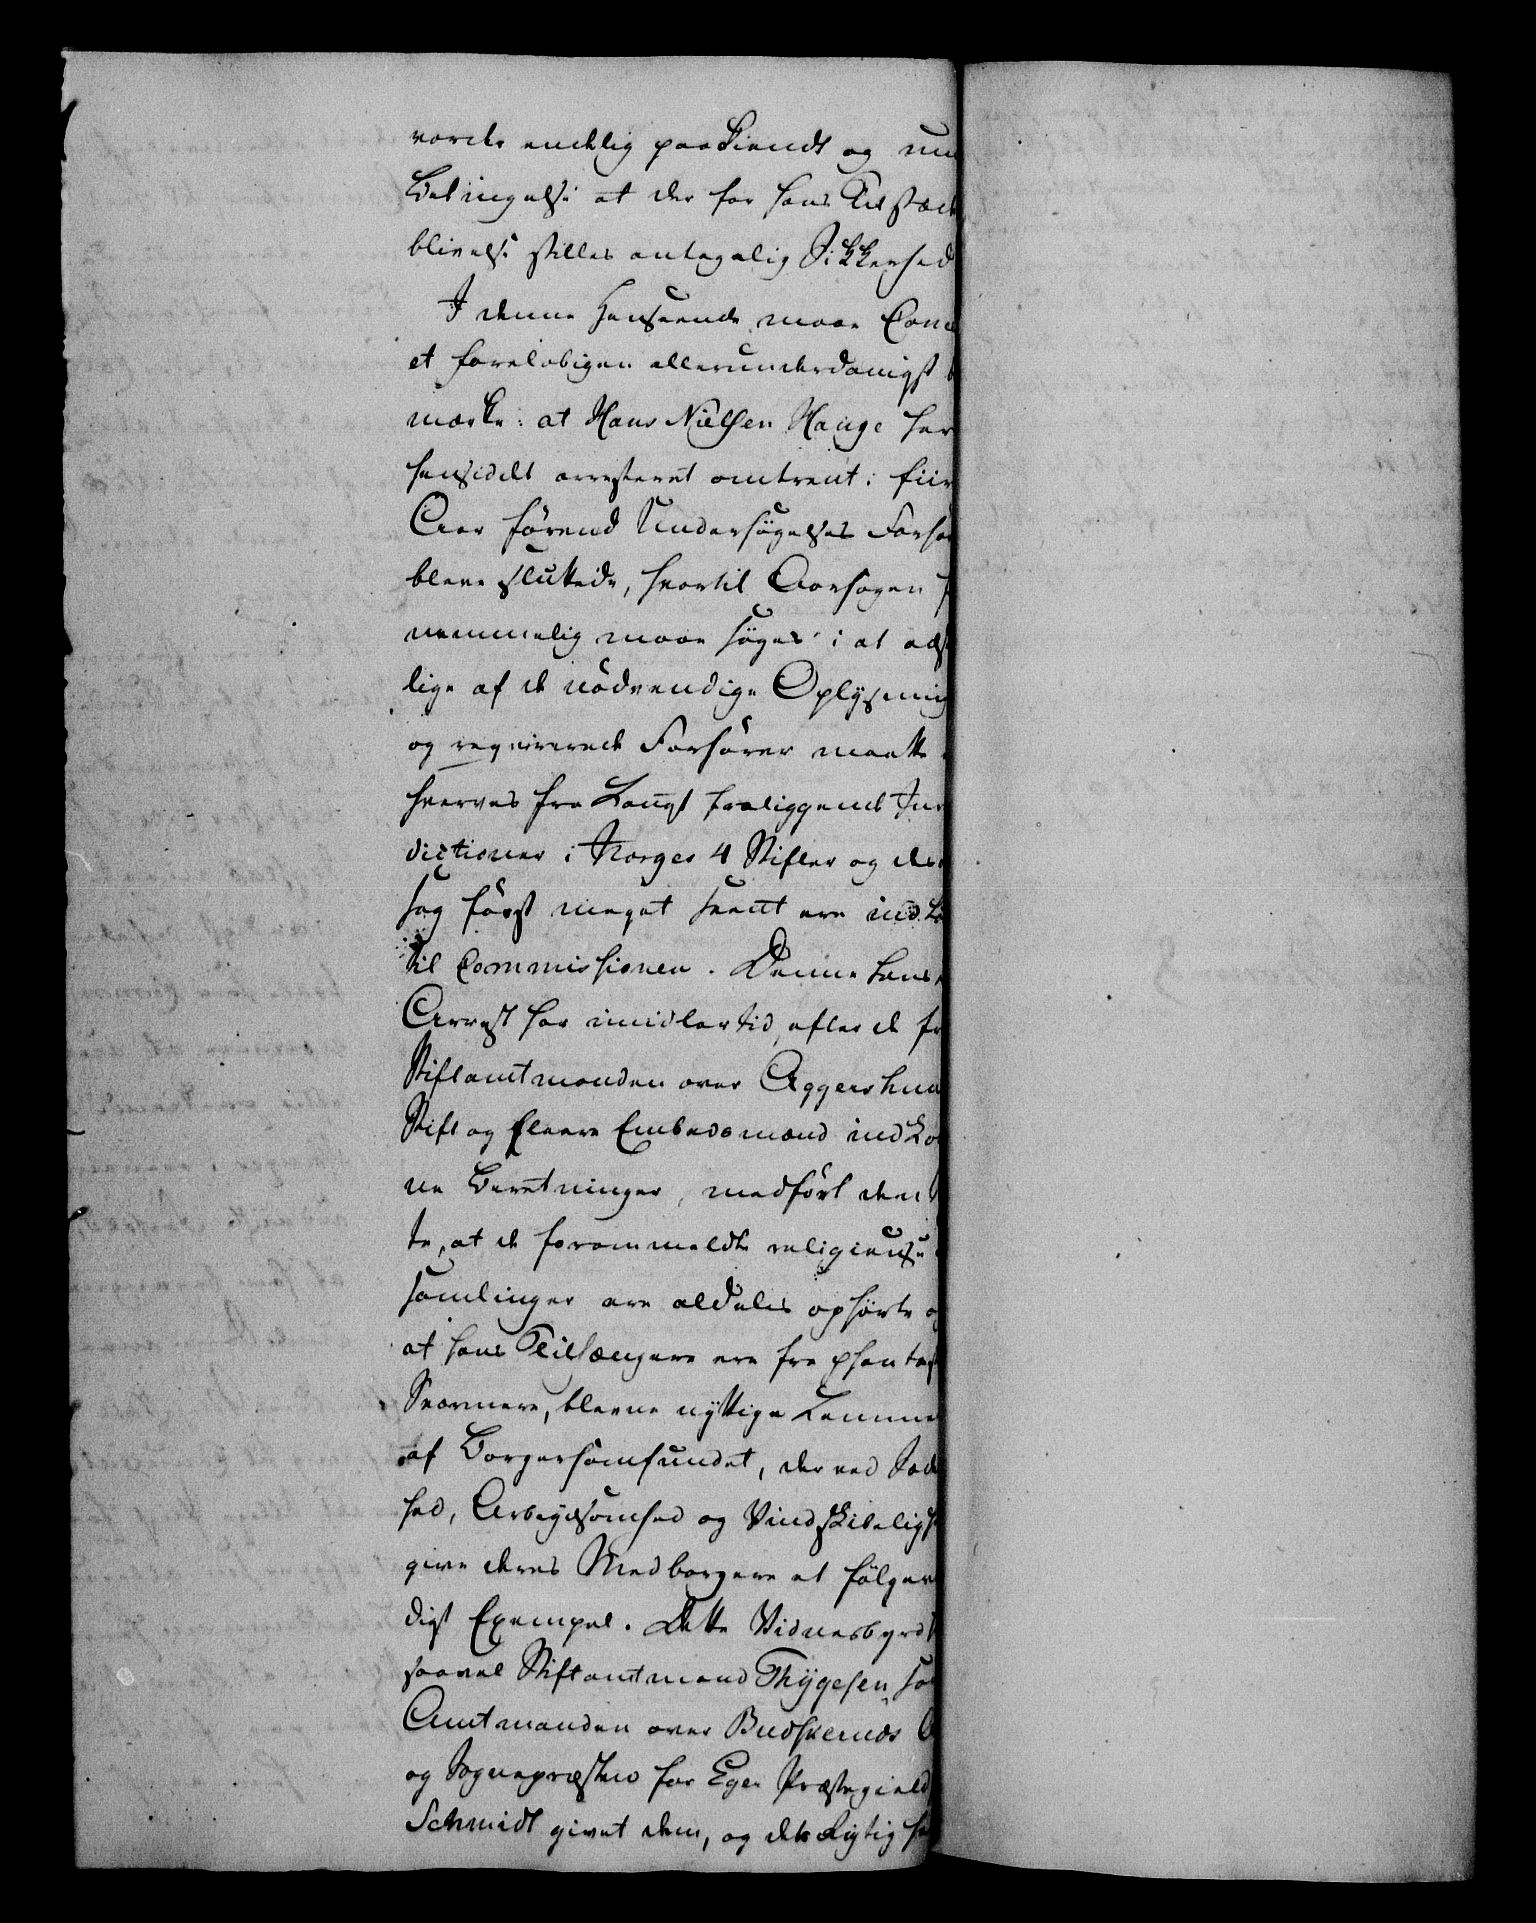 vorde endelig paakiendt og un
Betingelse at der for hans Tilstæde
blivelse stilles antagelig Sikkerhed
I denne Henseende maae Canc
et foreløbigen allerunderdanigst b
mærke: at Hans Nielsen Hauge har
hensiddet arresteret omtrent fiir
Aar førend Undersøgelses Forhø
bleve sluttede, hvortil Aarsagen f
nemmelig maae søges i at ads
lige af de nødvendige Oplysning
og reqvirerede Forhører maatte
hverves fra langt fraliggende Jur
dictioner i Norges 4 Stifter og des
sag først meget seent ere indk
til Commissionen. Denne hans
Arrest har imidlertid, efter de fr
Stiftamtmanden over Aggershuu
Stift og fleere Embedsmænd indko
ne Beretninger, medført den
te, at de forommeldte religieuse
samlinger ere aldeles ophørte o
at hans Tilhængere ere fra phantast
Sværmere, blevne nyttige Lemme
af Borgersamfundet, der ved Sæde
hed, Arbeydsomhed og Vindskibeligh
give deres Medborgere et følgev
digt Exempel. Dette Vidnesbyrd h
saavel Stiftamtmand Thygesen, so
Amtmanden over Budskeruds A
og Sognepræsten for Eger Præstegield
Schmidt givet dem, og dets Rigtig he